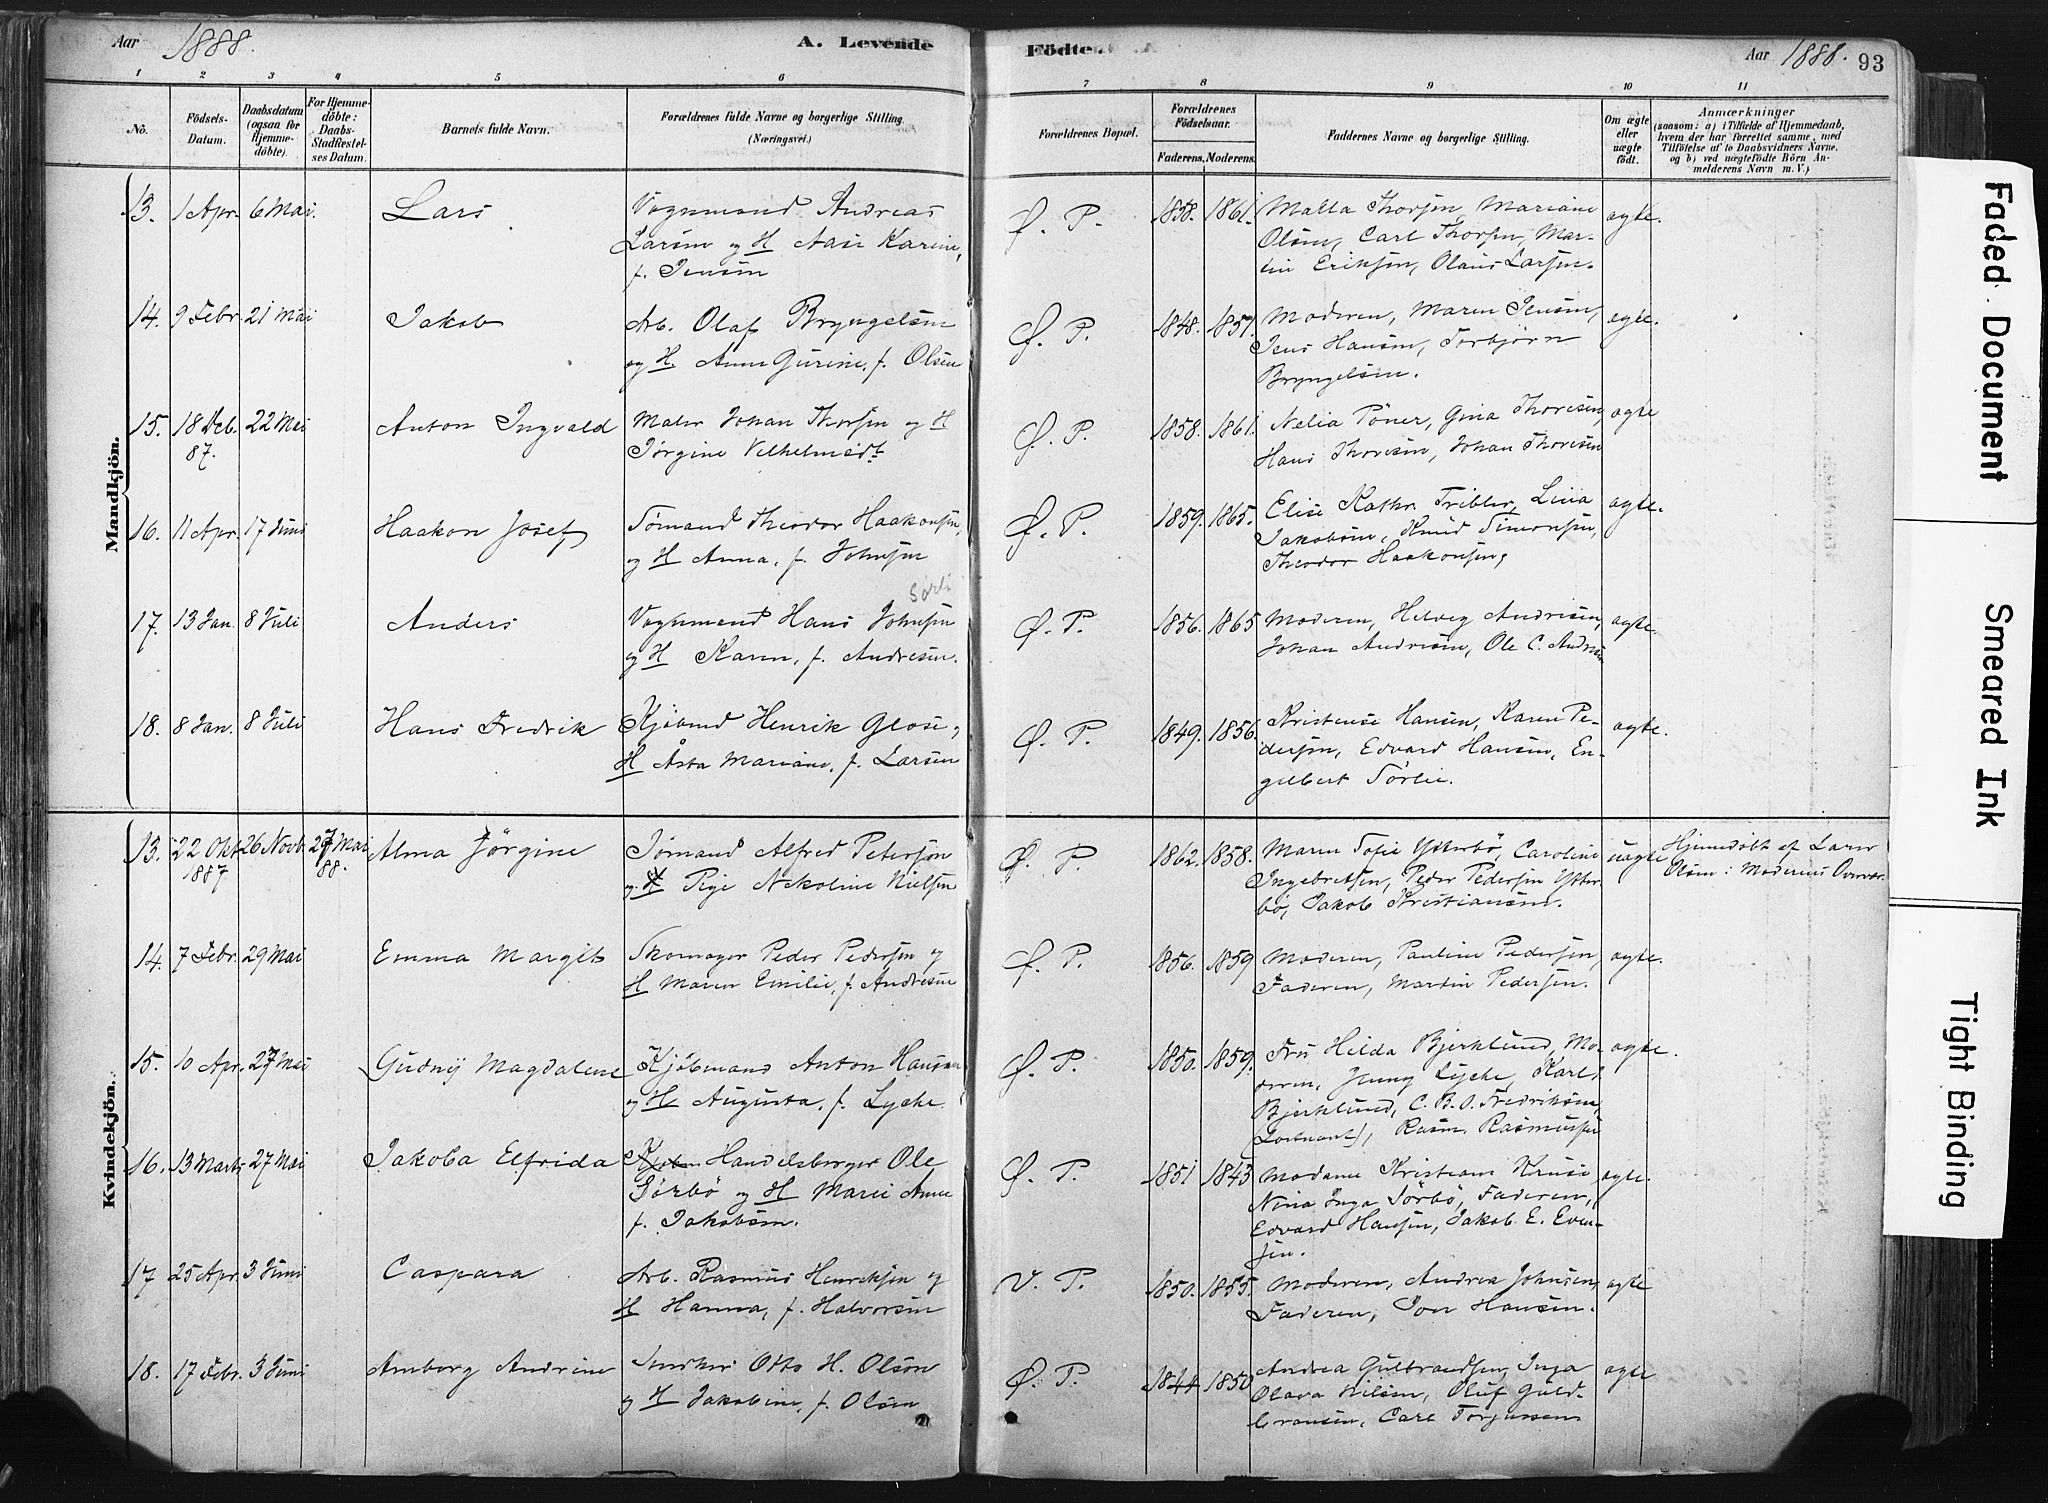 Aar 1888. A. Levende Födte. Aar 1888. 93
1 2 3 4 5 6 7 8 9 10 11
No.
Födsels-
Datum.
Daabsdatum
(ogsaa for
Hjemme-
döbte).
For Hjemme-
döbte:
Daabs-
Stadfæstel-
ses Datum.
Barnets fulde Navn.
Forældrenes fulde Navne og borgerlige Stilling
(Næringsvei.)
Forældrenes Bopæl.
Forældrenes
Födselsaar.
Faderens. Moderens.
Faddernes Navne og borgerlige Stilling.
Om ægte
eller
uægte
födt.
Anmærkninger
(saasom: a) i Tilfælde af Hjemmedaab,
hvem der har forrettet samme, med
Tilföielse af to Daabsvidners Navne,
og b) ved uægtefödte Börn An-
melderens Navn m. V.)
Mandkjön.
13. 1 Apr. 6 Mai. Lars
Vognmand Andreas
Larsen og H Aase Karine,
f. Jensen
Ø. P. 1858. 1861.
Malla Thorsen, Mariane
Olsen, Carl Thorsen, Mar-
tin Eriksen, Olaus Larsen.
ægte.
14. 9 Febr. 21 Mai Jakob
Arb. Olaf Bryngelsen
og H. Anne Gurine, f. Olsen
Ø. P. 1848. 1857.
Moderen, Maren Jensen,
Jens Hansen, Torbjørn
Bryngelsen.
ægte.
15. 18 Dcb. 87. 22 Mai Anton Ingvald
Maler Johan Thorsen og H
Jørgine Vilhelmsdt
Ø. P. 1858. 1861.
Nelia Töner, Gina Thoresen,
Hans Thoresen, Johan Thoresen
ægte
16. 11 Apr. 17 Juni Haakon Josef
Sømand Theodor Haakonsen,
og H Anna, f. Johnsen
Ø. P. 1859. 1865.
Elise Kathr. Tribler, Lina
Jakobsen, Knud Simonsen,
Theodor Haakonsen,
ægte.
17. 13 Jan. 8 Juli Anders
Sørli
Vognmand Hans Johnsen
og H Karen, f. Andresen.
Ø. P. 1856. 1865
Moderen, Helvig Andresen,
Johan Andresen, Ole C. Andresen
ægte.
18. 8 Jan. 8 Juli Hans Fredrik
Kjøbmd Henrik Glose,
H Åsta Mariane, f. Larsen
Ø. P. 1849. 1856.
Kristense Hansen, Karen Pe-
dersen, Edvard Hansen, En-
gelbert Sørlie.
ægte.
Kvindekjön.
13. 22 Okt 1887 26 Novb. 27 Mai 88. Alma Jörgine
Sømand Alfred Petersen
og H Pige Nikoline Nielsen
Ø. P. 1862. 1858.
Maren Sofie Ytterbö, Caroline
Ingebretsen, Peder Pedersen Ytter-
bö, Jakob Kristiansen.
uægte
Hjemmedöbt af Laurs
Olsen i Moderens Overvær.
14. 7 Febr. 29 Mai Emma Margit
Skomager Peder Pedersen og
H Maren Emilie, f. Andresen
Ø. P. 1856. 1859
Moderen, Pauline Pedersen,
Faderen, Martin Pedersen.
ægte.
15. 10 Apr. 27 Mai Gudny Magdalene
Kjöbmand Anton Hansen
og H Augusta, f. Lyche.
Ø. P. 1850. 1859.
Fru Hilda Bjerklund, Mo-
deren, Jenny Lyche, Karl
Bjerklund, C. B. O. Fredriksen,
(Løitnant), Rasm. Rasmussen
ægte.
16. 13 Marts 27 Mai Jakoba Elfrida
Handelsborger Ole
Sørbö og H Marie Anne
f. Jakobsen.
Ø. P. 1851 1843
Madame Kristiane Kruse
Nina Inga Sörbö, Faderen,
Edvard Hansen, Jakob E. Even-
sen.
ægte.
17 25 Apr. 3 Juni Caspara
Arb. Rasmus Henriksen og
H Hanna, f. Halvorsen
V. P. 1850. 1855.
Moderen, Andrea Johnsen,
Faderen, Jon Hansen.
ægte
18. 17 Febr. 3 Juni Amborg Andrine
Snedker Otto H. Olsen
og H Jakobine, f. Olsen
Ø. P. 1844 1850
Andrea Gulbrandsen, Inga
Olava Nilsen, Oluf Guld-
bransen, Carl Torgussen
ægte
Faded Document
Smeared Ink
Tight Binding